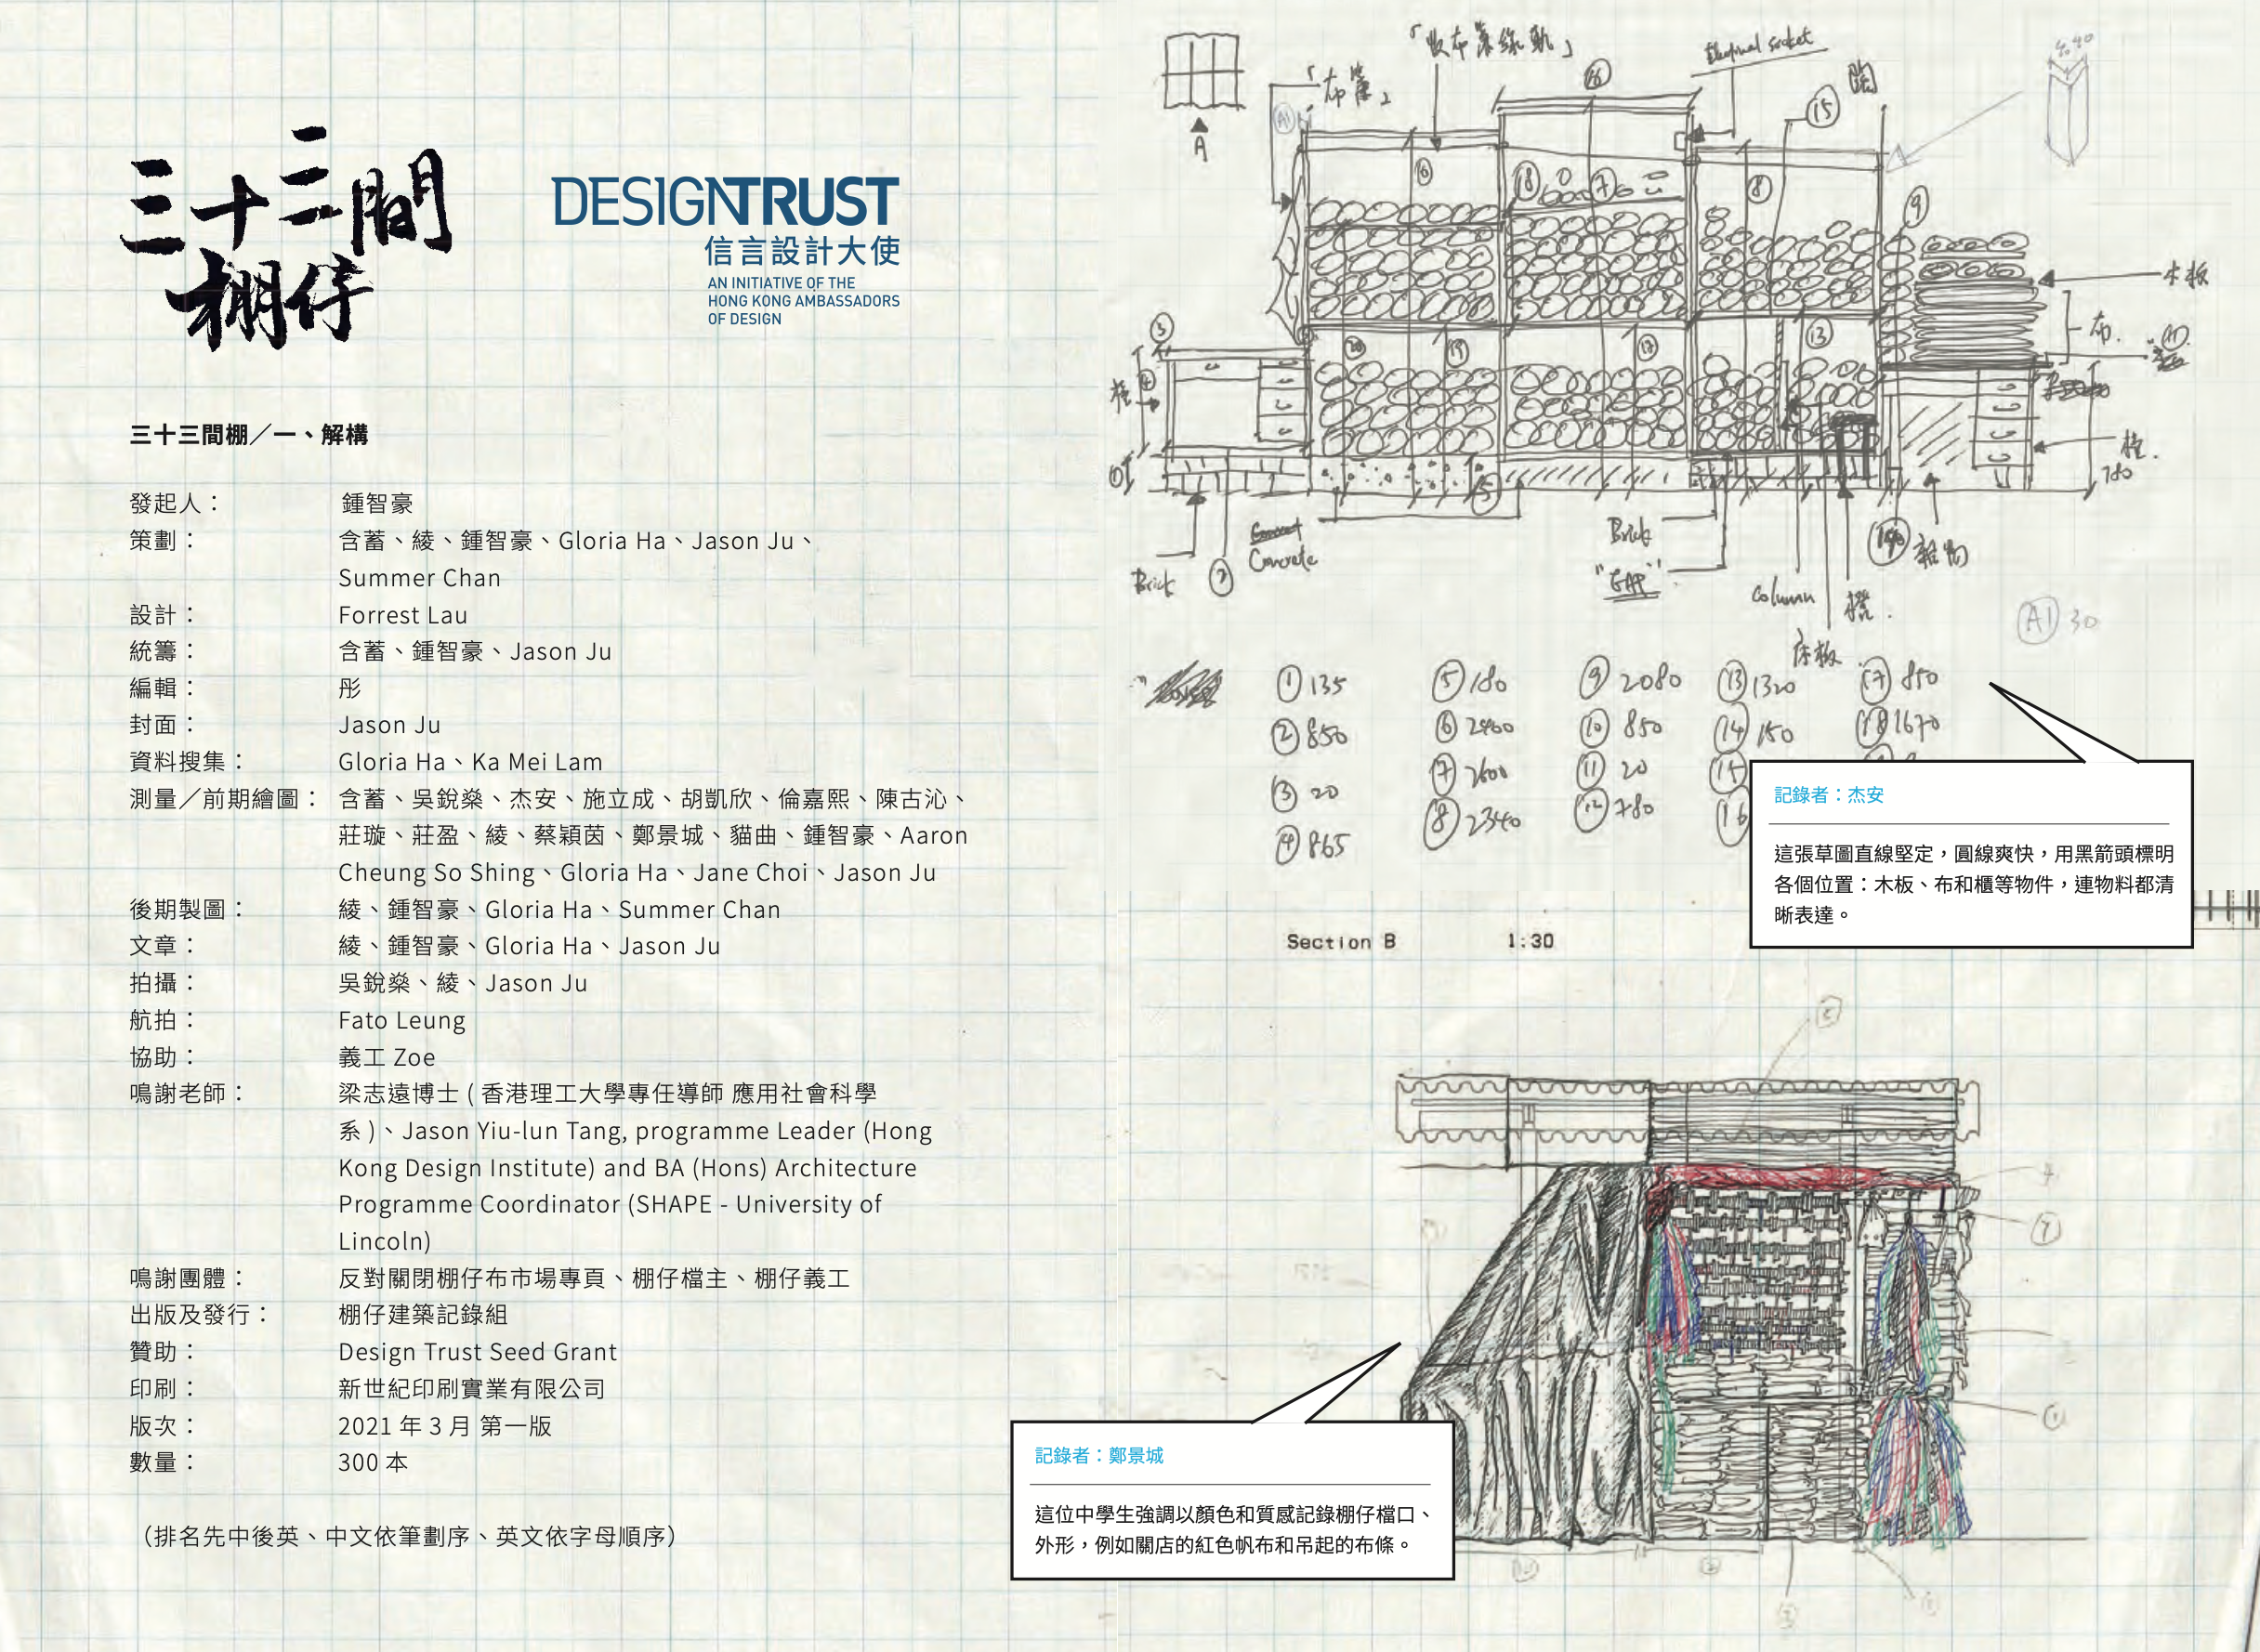 三十三間
棚仔
DESIGNTRUST
信言設計大使
AN INITIATIVE OF THE
HONG KONG AMBASSADORS
OF DESIGN
三十三間棚／一、解構
發起人： 鍾智豪
策劃： 含蓄、綾、鍾智豪、Gloria Ha、Jason Ju、
Summer Chan
設計： Forrest Lau
統籌： 含蓄、鍾智豪、Jason Ju
編輯： 彤
封面： Jason Ju
資料搜集： Gloria Ha、Ka Mei Lam
測量／前期繪圖： 含蓄、吳銳燊、杰安、施立成、胡凱欣、倫嘉熙、陳古沁、
莊璇、莊盈、綾、蔡穎茵、鄭景城、貓曲、鍾智豪、Aaron
Cheung So Shing、Gloria Ha、Jane Choi、Jason Ju
後期製圖： 綾、鍾智豪、Gloria Ha、Summer Chan
文章： 綾、鍾智豪、Gloria Ha、Jason Ju
拍攝： 吳銳燊、綾、Jason Ju
航拍： Fato Leung
協助： 義工 Zoe
鳴謝老師： 梁志遠博士 ( 香港理工大學專任導師 應用社會科學
系 )、Jason Yiu-lun Tang, programme Leader (Hong
Kong Design Institute) and BA (Hons) Architecture
Programme Coordinator (SHAPE - University of
Lincoln)
鳴謝團體： 反對關閉棚仔布市場專頁、棚仔檔主、棚仔義工
出版及發行： 棚仔建築記錄組
贊助： Design Trust Seed Grant
印刷： 新世紀印刷實業有限公司
版次： 2021 年 3 月 第一版
數量： 300 本
（排名先中後英、中文依筆劃序、英文依字母順序）
A
「布簾」
Electrical socket
⑯
⑮
⑨
木板
布.
櫃.
780
Brick
②
Concrete
Brick
"GAP"
Column
櫈.
床板
雜物
A1 30
① 135
② 850
③ 20
④ 865
⑤ 180
⑥ 2400
⑦ 2600
⑧ 2340
⑨ 2080
⑩ 850
⑪ 20
⑫ 780
⑬ 1320
⑭ 150
⑮
⑯
⑰ 850
⑱ 1670
記錄者：杰安
這張草圖直線堅定，圓線爽快，用黑箭頭標明
各個位置：木板、布和櫃等物件，連物料都清
晰表達。
Section B 1:30
記錄者：鄭景城
這位中學生強調以顏色和質感記錄棚仔檔口、
外形，例如關店的紅色帆布和吊起的布條。